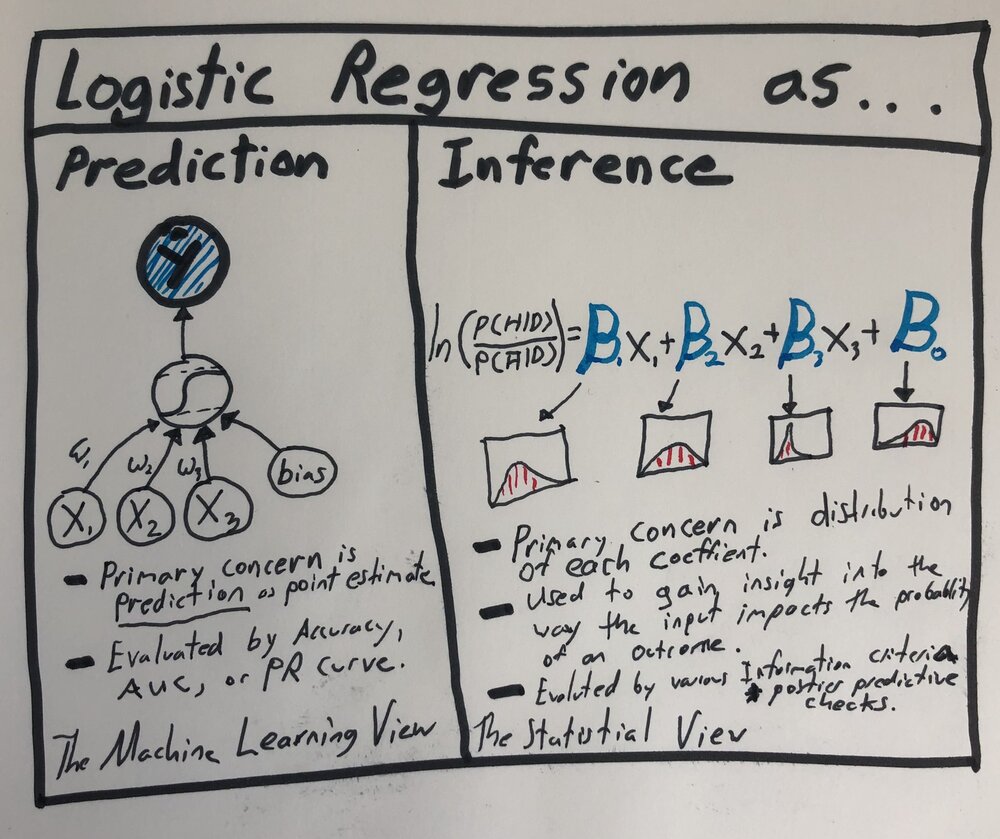 Logistic Regression as...
Prediction
Ŷ
ω₁ ω₂ ω₃ bias
X₁ X₂ X₃
- Primary concern is
prediction as point estimate
- Evaluated by Accuracy,
AUC, or PR curve.
The Machine Learning View
Inference
ln(P(H|D)/P(H̄|D))=B₁X₁+B₂X₂+B₃X₃+B₀
- Primary concern is distribution
of each coeffient.
- Used to gain insight into the
way the input impacts the probablity
of an outcome.
- Evaluted by various Information criteria
+ postier predictive
checks.
The Statistial View